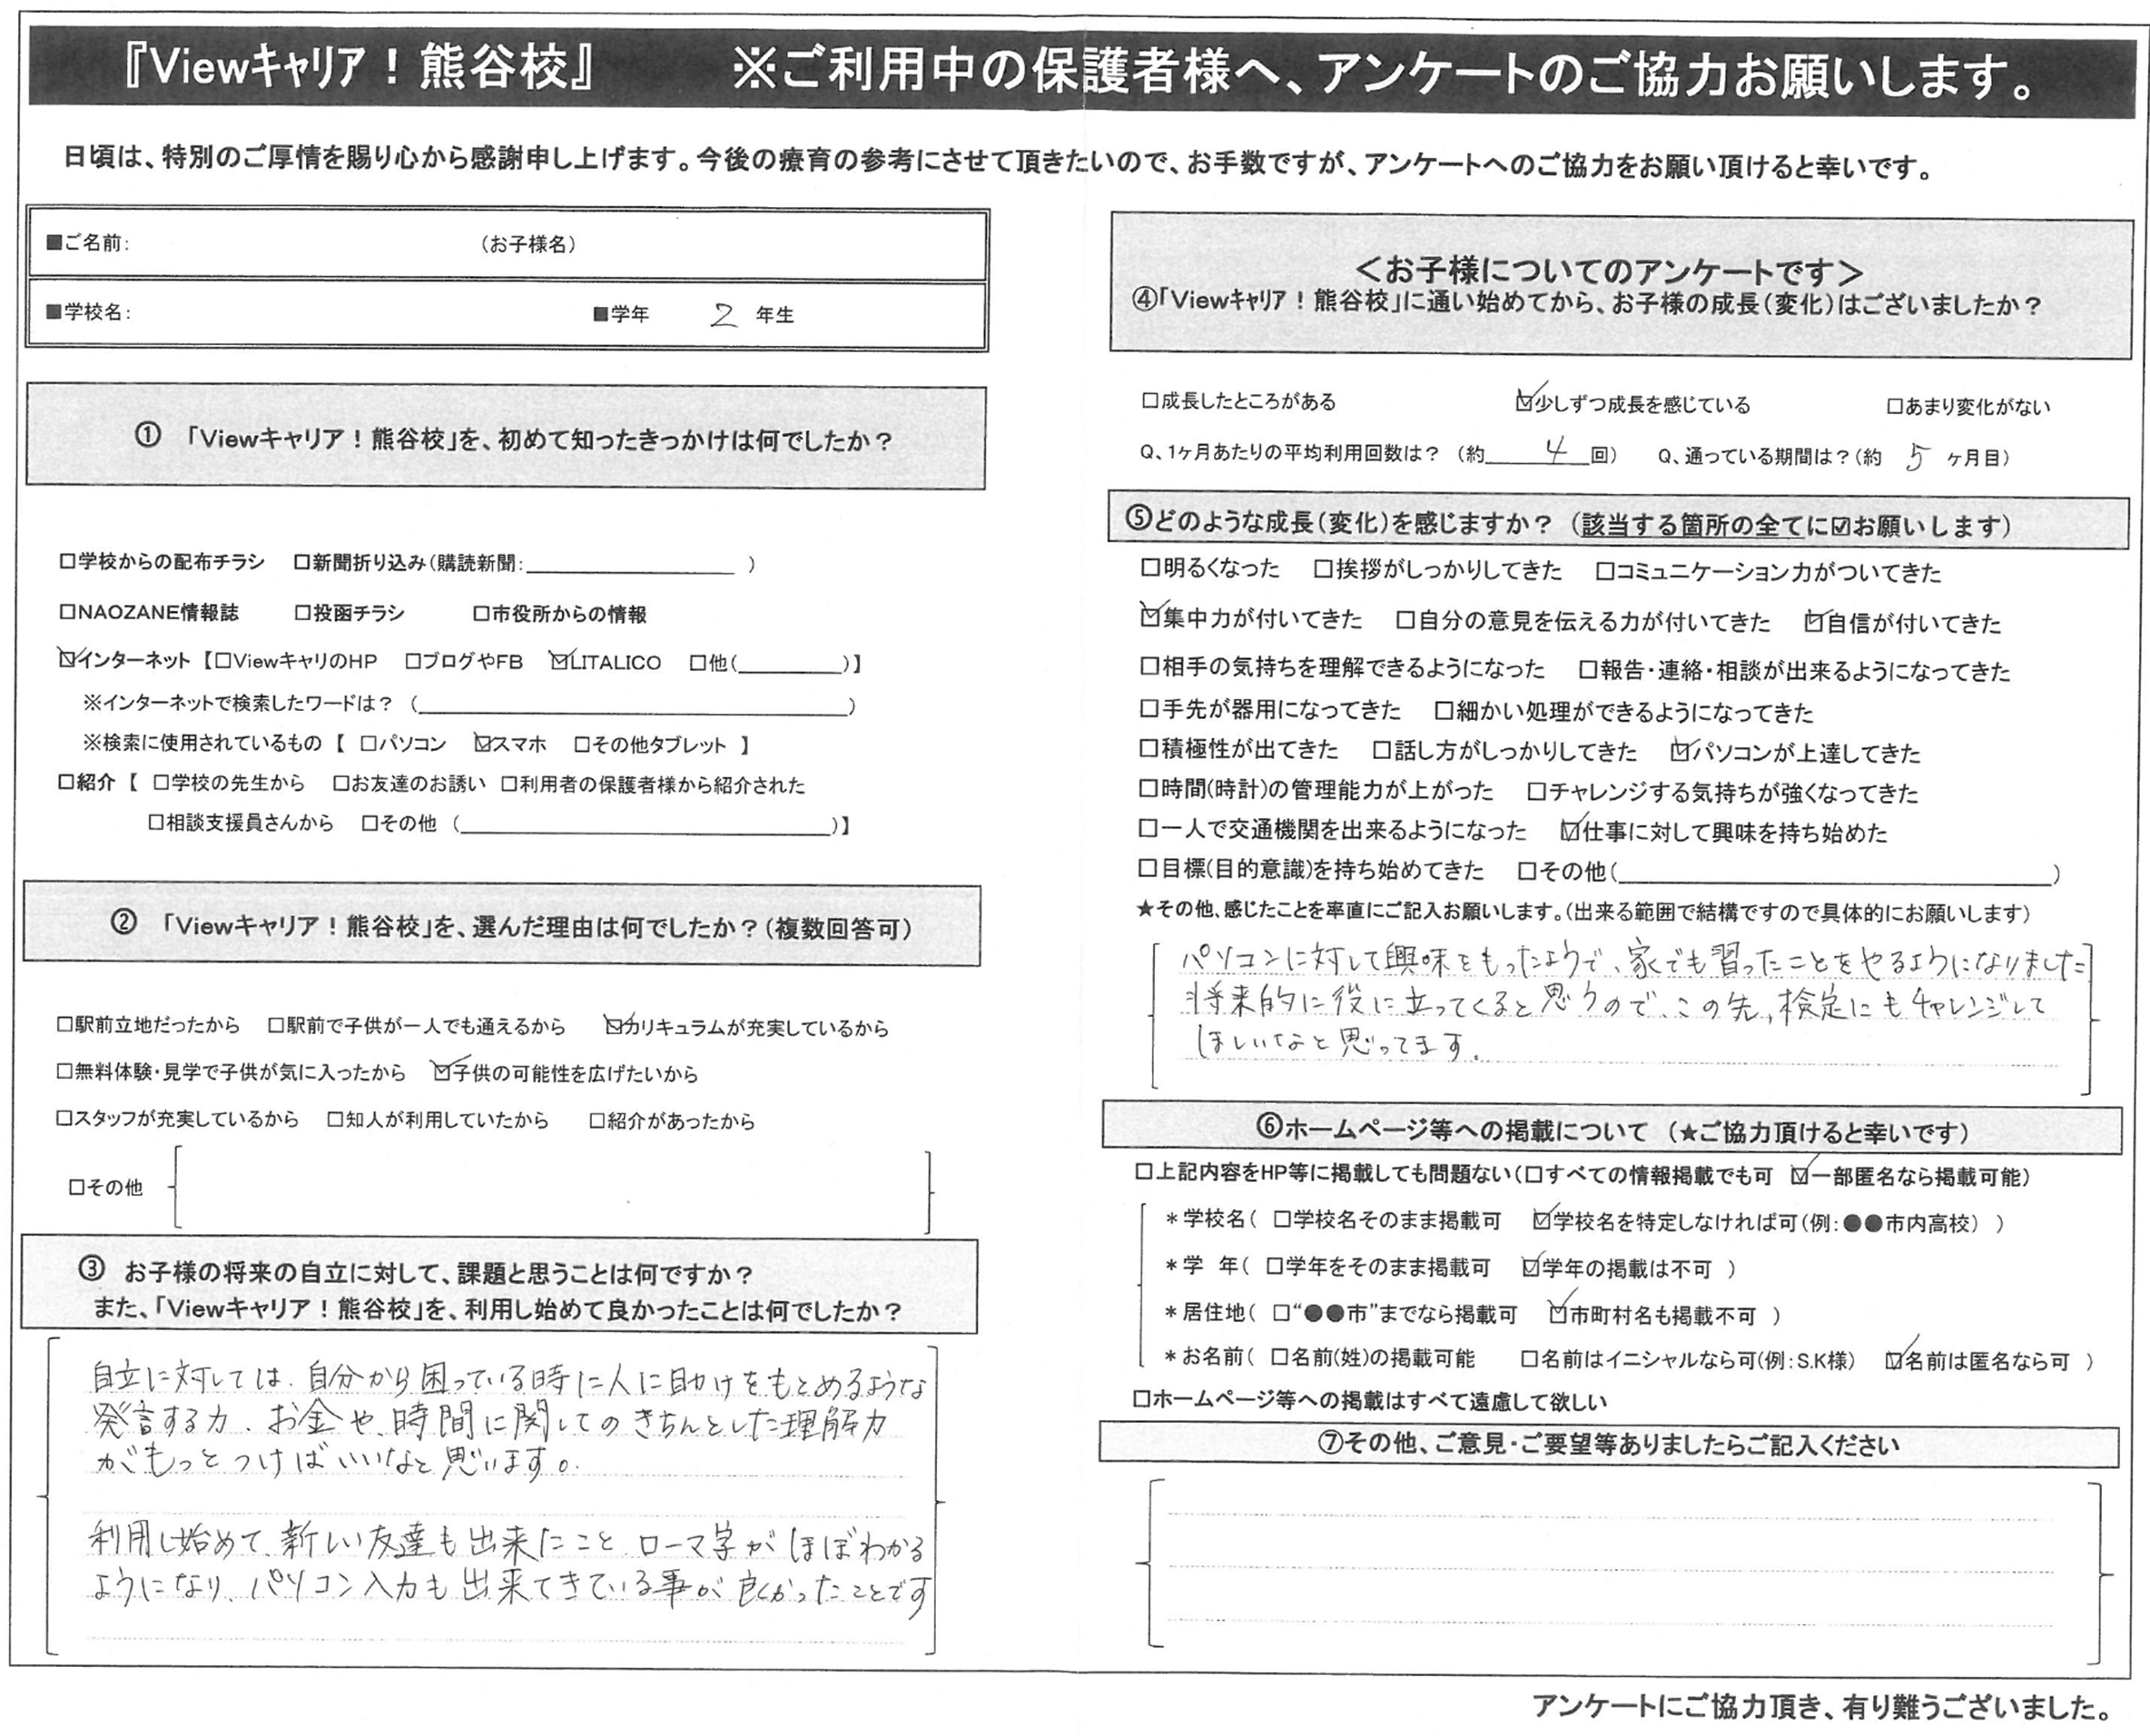 『Viewｷｬﾘｱ！熊谷校』　※ご利用中の保護者様へ、アンケートのご協力お願いします。
日頃は、特別のご厚情を賜り心から感謝申し上げます。今後の療育の参考にさせて頂きたいので、お手数ですが、アンケートへのご協力をお願い頂けると幸いです。
■ご名前：　（お子様名）
■学校名：　■学年　2　年生
①　「Viewｷｬﾘｱ！熊谷校」を、初めて知ったきっかけは何でしたか？
□学校からの配布チラシ　□新聞折り込み（購読新聞：＿＿＿＿＿＿）
□NAOZANE情報誌　□投函チラシ　□市役所からの情報
☑インターネット【□ViewキャリのHP　□ブログやFB　☑LITALICO　□他（＿＿＿＿）】
※インターネットで検索したワードは？（＿＿＿＿＿＿＿＿＿＿）
※検索に使用されているもの【　□パソコン　☑スマホ　□その他タブレット　】
□紹介【　□学校の先生から　□お友達のお誘い　□利用者の保護者様から紹介された
□相談支援員さんから　□その他（＿＿＿＿＿＿＿＿＿＿）】
②　「Viewｷｬﾘｱ！熊谷校」を、選んだ理由は何でしたか？（複数回答可）
□駅前立地だったから　□駅前で子供が一人でも通えるから　☑カリキュラムが充実しているから
□無料体験・見学で子供が気に入ったから　☑子供の可能性を広げたいから
□スタッフが充実しているから　□知人が利用していたから　□紹介があったから
□その他
③　お子様の将来の自立に対して、課題と思うことは何ですか？
また、「Viewｷｬﾘｱ！熊谷校」を、利用し始めて良かったことは何でしたか？
自立に対しては、自分から困っている時に人に助けをもとめるような
発言する力、お金や、時間に関してのきちんとした理解力
がもっとつけばいいなと思います。
利用し始めて、新しい友達も出来たこと、ローマ字がほぼわかる
ようになり、パソコン入力も出来てきている事が良くかったことです
＜お子様についてのアンケートです＞
④「Viewｷｬﾘｱ！熊谷校」に通い始めてから、お子様の成長（変化）はございましたか？
□成長したところがある　☑少しずつ成長を感じている　□あまり変化がない
Q、1ヶ月あたりの平均利用回数は？（約　4　回）　Q、通っている期間は？（約　5　ヶ月目）
⑤どのような成長（変化）を感じますか？（該当する箇所の全てに☑お願いします）
□明るくなった　□挨拶がしっかりしてきた　□コミュニケーション力がついてきた
☑集中力が付いてきた　□自分の意見を伝える力が付いてきた　☑自信が付いてきた
□相手の気持ちを理解できるようになった　□報告・連絡・相談が出来るようになってきた
□手先が器用になってきた　□細かい処理ができるようになってきた
□積極性が出てきた　□話し方がしっかりしてきた　☑パソコンが上達してきた
□時間（時計）の管理能力が上がった　□チャレンジする気持ちが強くなってきた
□一人で交通機関を出来るようになった　☑仕事に対して興味を持ち始めた
□目標（目的意識）を持ち始めてきた　□その他（＿＿＿＿＿＿＿＿＿＿）
★その他、感じたことを率直にご記入お願いします。（出来る範囲で結構ですので具体的にお願いします）
パソコンに対して興味をもったようで、家でも習ったことをやるようになりました
将来的に役に立ってくると思うので、この先、検定にもチャレンジして
ほしいなと思ってます。
⑥ホームページ等への掲載について（★ご協力頂けると幸いです）
□上記内容をHP等に掲載しても問題ない（□すべての情報掲載でも可　☑一部匿名なら掲載可能）
＊学校名（　□学校名そのまま掲載可　☑学校名を特定しなければ可（例：●●市内高校）　）
＊学　年（　□学年をそのまま掲載可　☑学年の掲載は不可　）
＊居住地（　□“●●市”までなら掲載可　☑市町村名も掲載不可　）
＊お名前（　□名前（姓）の掲載可能　□名前はイニシャルなら可（例：S.K様）　☑名前は匿名なら可　）
□ホームページ等への掲載はすべて遠慮して欲しい
⑦その他、ご意見・ご要望等ありましたらご記入ください
アンケートにご協力頂き、有り難うございました。